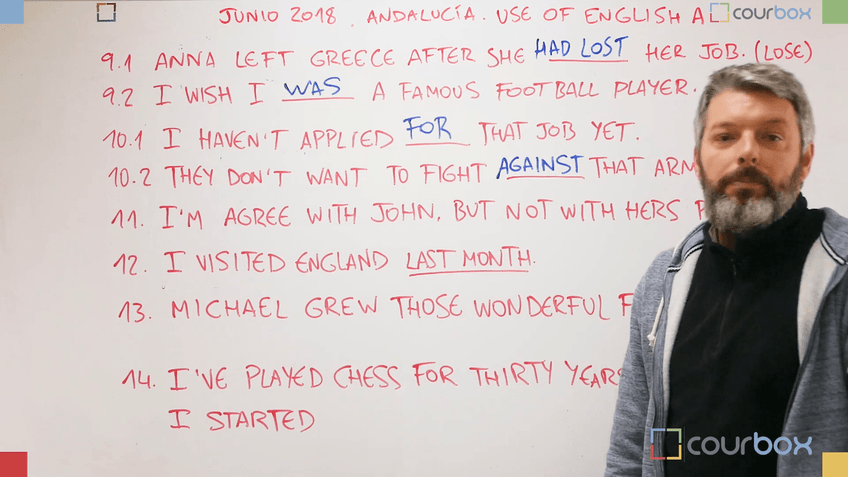 JUNIO 2018. ANDALUCÍA. USE OF ENGLISH A
courbox
9.1 ANNA LEFT GREECE AFTER SHE HAD LOST HER JOB. (LOSE)
9.2 I WISH I WAS A FAMOUS FOOTBALL PLAYER.
10.1 I HAVEN'T APPLIED FOR THAT JOB YET.
10.2 THEY DON'T WANT TO FIGHT AGAINST THAT
11. I'M AGREE WITH JOHN, BUT NOT WITH HERS
12. I VISITED ENGLAND LAST MONTH.
13. MICHAEL GREW THOSE WONDERFUL
14. I'VE PLAYED CHESS FOR THIRTY YEARS
I STARTED
courbox